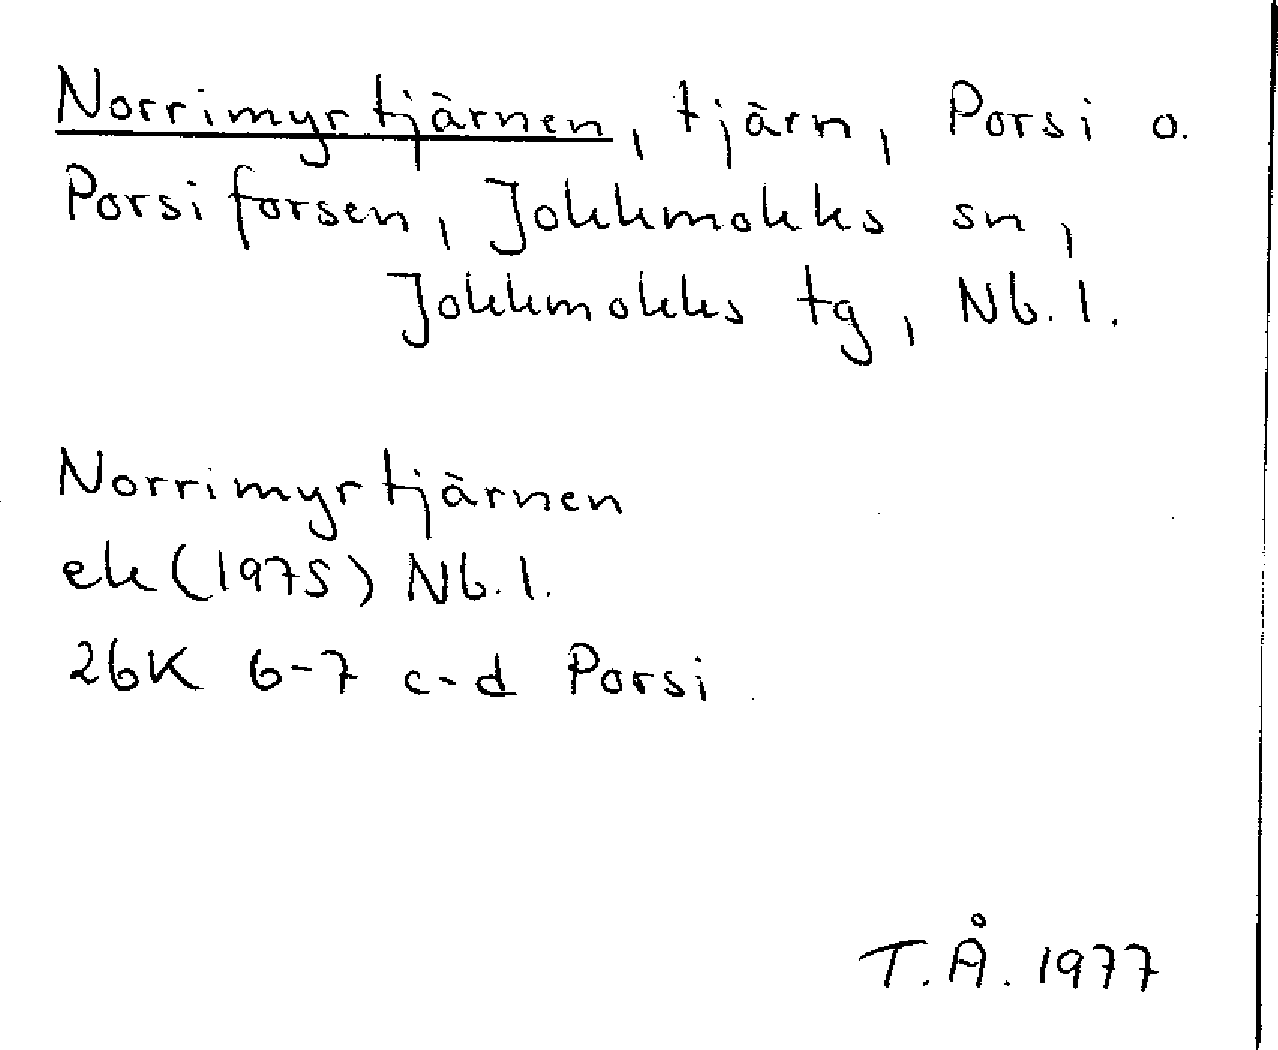 Norrimyrtjärnen, tjärn, Porsi o.
Porsiforsen, Jokkmokks sn,
Jokkmokks tg, Nb. l.
Norrimyrtjärnen
ek (1975) Nb. l.
26K 6-7 c-d Porsi
T.Å. 1977